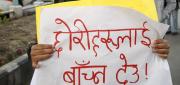 छोरीहरूलाई
बाँच्न देउ !